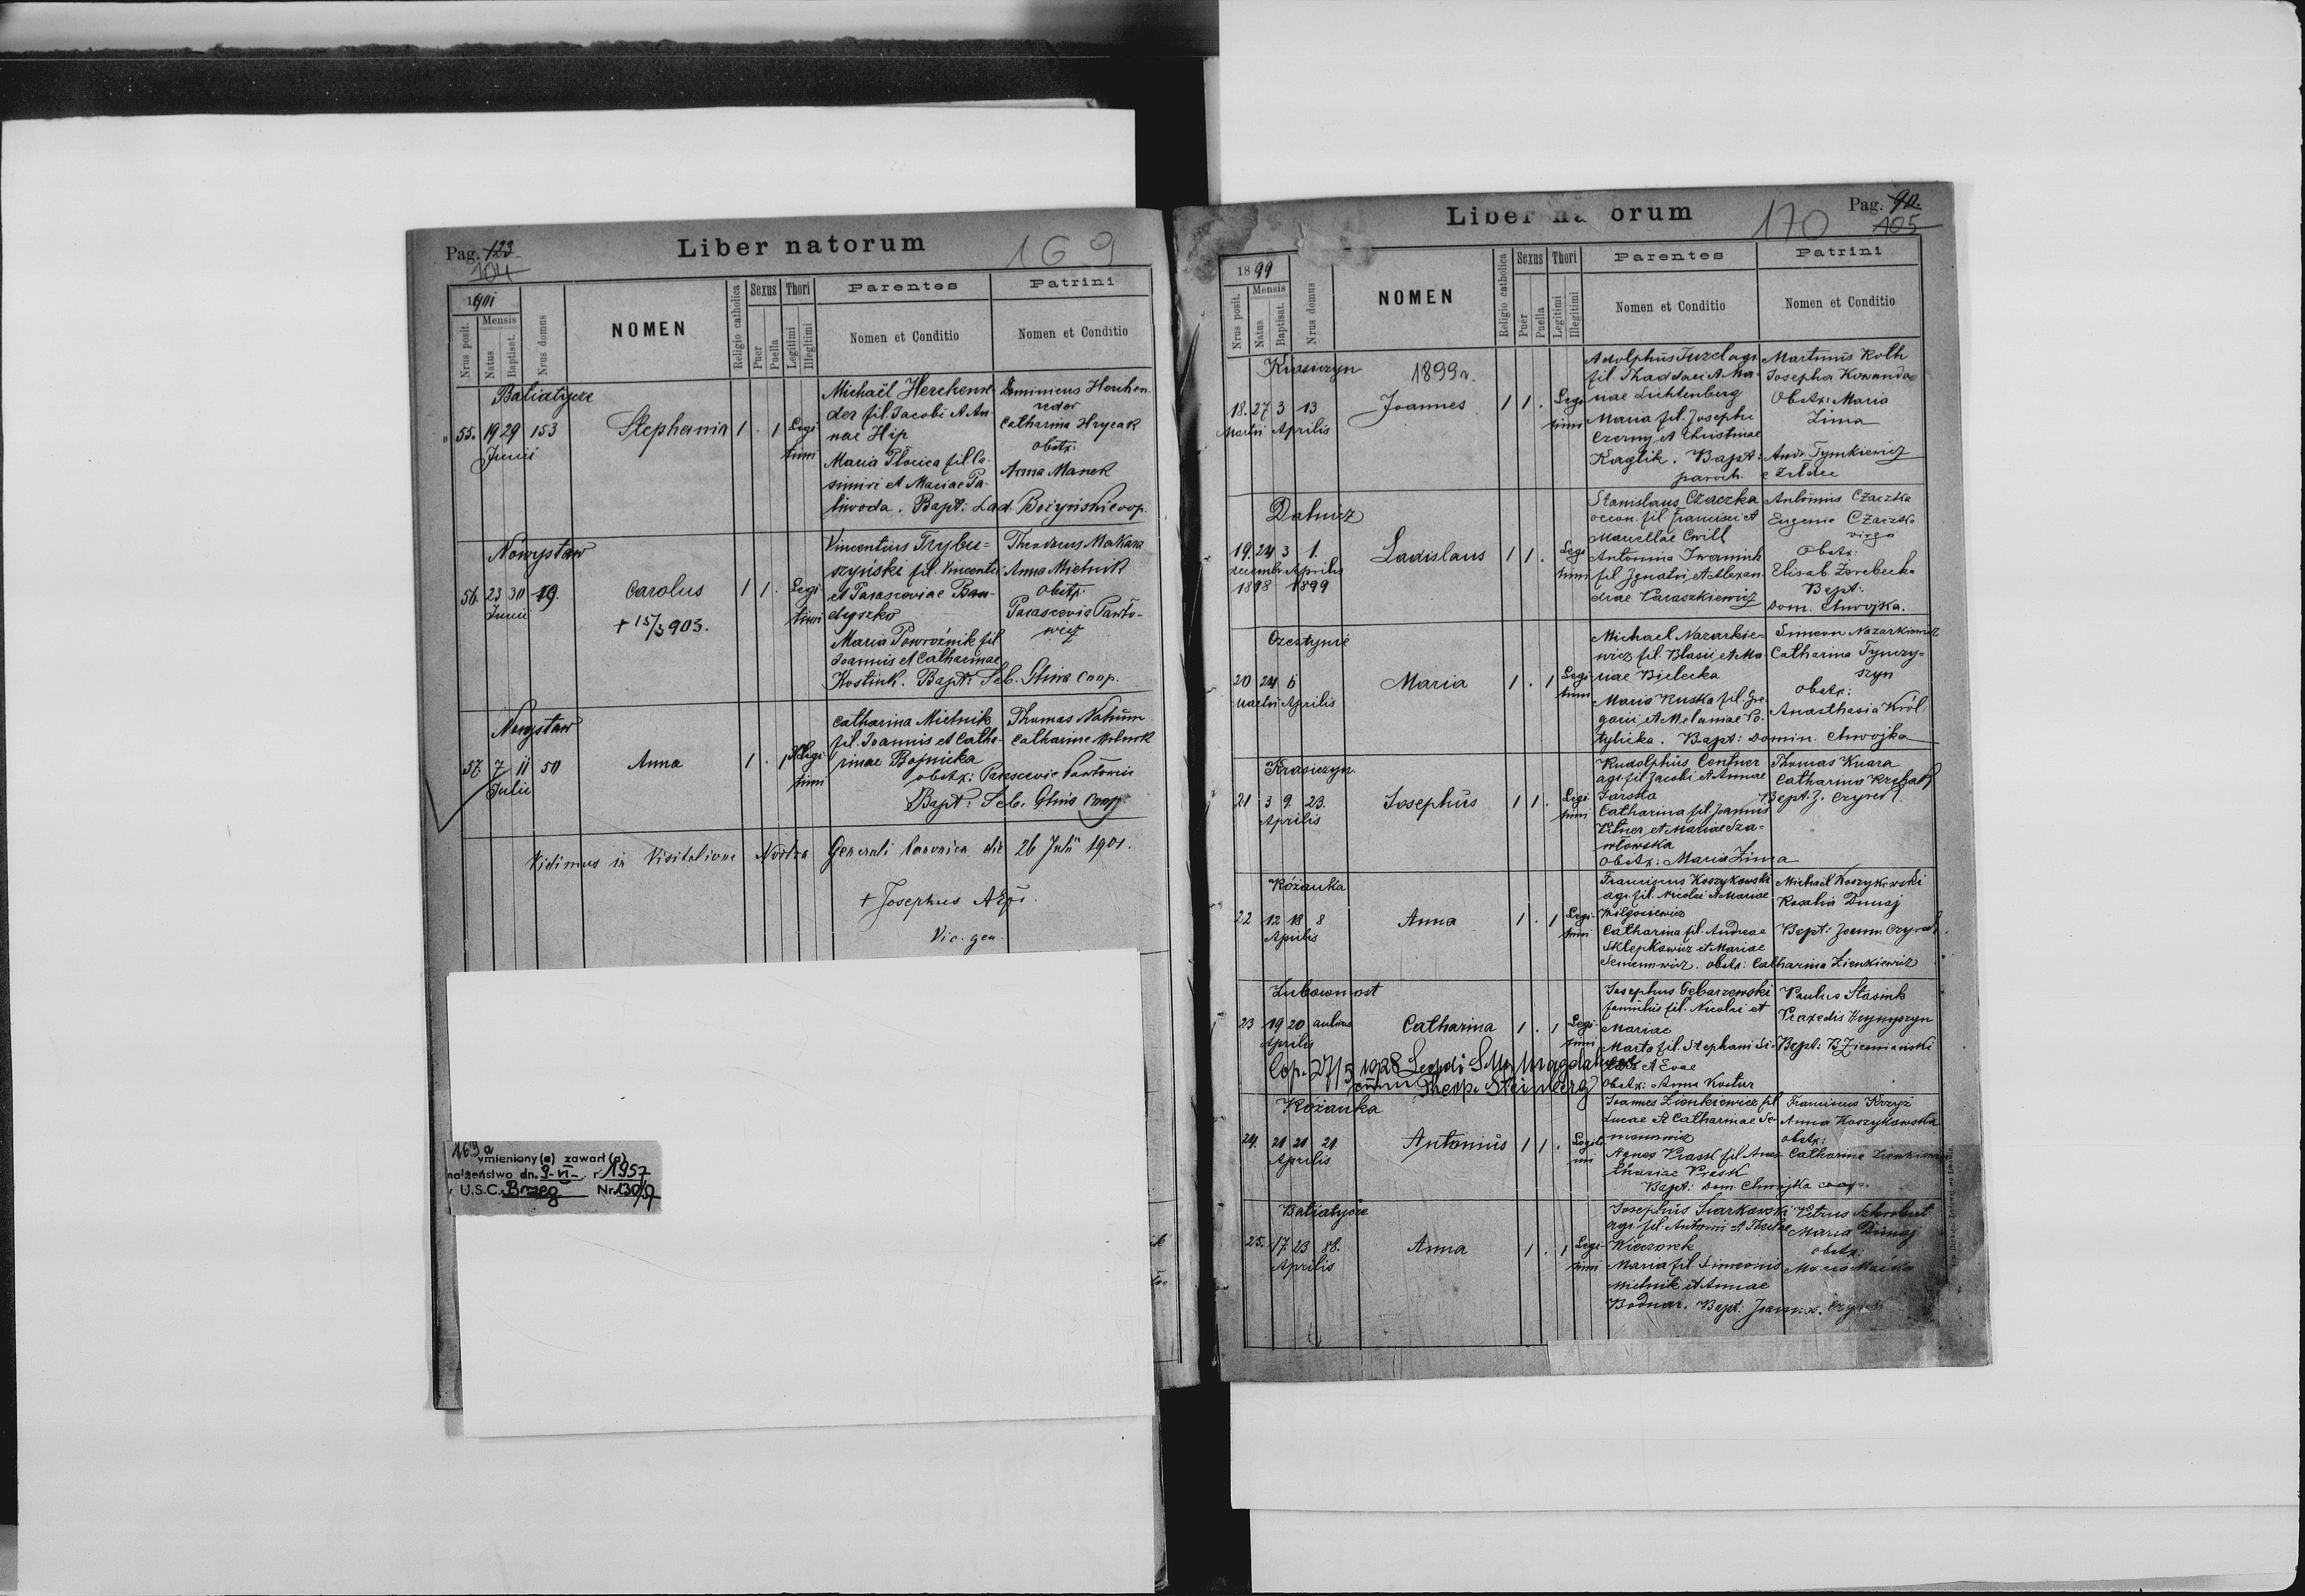 Pag. 123
104
Liber natorum
169
1901
Nrus posit.
Mensis
Natus
Baptisat.
Nrus domus
NOMEN
Religio catholica
Sexus
Puer
Puella
Thori
Legitimi
Illegitimi
Parentes
Nomen et Conditio
Patrini
Nomen et Conditio
Batiatycze
55. 19 29 153
Junii
Stephania 1 . 1 Legi
timi
Michaël Herchenre
der fil. Jacobi et An
nae Hip
Maria Płocica fil. Ca-
simiri et Mariae Pa-
liwoda. Bapt: Lad. Bożyński coop.
Dominicus Herchen
reder
Catharina Hrycak
Obstx:
Anna Manek
Nowystaw
56. 23 30 19.
Junii
Carolus
+ 15/3 903.
1 1 . Legi
timi
Vincentius Trybu-
szyński fil. Vincentii
et Parasceviae
Maria Powroźnik fil
Joannis et Catharinae
Kostiuk. Bapt: Seb. Glina Coop.
Theodorus Makara
Anna Mielnik
Obstx:
Parascevia Pańto-
wicz
Nowystaw
57. 7 11 50
Julii
Anna
1 . 1 Illegi
timi
Catharina Mielnik
fil. Joannis et Catha-
rinae Bojnicka
Thomas Nahum
Catharina
obstx: Parascevia
Bapt: Seb. Glina Coop.
Vidimus in Visitatione Nostra Generali Canonica die 26 Julii 1901.
+ Josephus
Vic. gen.
169a
ymieniony(a) zawarł(a)
małżeństwo dn. 9-VI- r 1957
U.S.C. Brzeg Nr 130/57
Liber natorum
170
Pag. 90.
105
1899
Nrus posit.
Mensis
Natus
Baptisat.
Nrus domus
NOMEN
Religio catholica
Sexus
Puer
Puella
Thori
Legitimi
Illegitimi
Parentes
Nomen et Conditio
Patrini
Nomen et Conditio
Krasiczyn
1899 r.
18. 27 3 13
Martii Aprilis
Joannes 1 1 . Legi
timi
Adolphus Tuzel agr.
fil. Thaddaei et Ma-
riae Lichtenberg
Maria fil. Josephi
Czerny et Christinae
Kaglik. Bapt:
paroch.
Martinus Roth
Josepha Kowanda
Obstx: Maria
Zima
Andr. Tymkiewicz
Dalnicz
19. 24 3 1.
decembr. Aprilis
1898 1899
Ladislaus 1 1 . Legi
timi
Stanislaus Czaczka
oecon. fil. Francisci et
Marcellae Cwill
Antonina Iwaniuk
fil. Ignatii et Alexan
drae Karaszkiewicz
Antonius Czaczka
Eugenia Czaczka
virgo
Obstx:
Elisab. Zarebecka
Bapt:
Dom. Chwojka.
Czestynie
20 24 6
Martii Aprilis
Maria 1 . 1 Legi
timi
Michael Nazarkie-
wicz fil. Blasii et Ma
riae Bielecka
Maria Ruska fil. Gre
gorii et Melaniae Po-
tylicka. Bapt: Domin. Chwojka
Simeon Nazarkiewicz
Catharina Tymczy-
szyn
Obstx:
Anasthasia Król
Krasiczyn
21 3 9. 23.
Aprilis
Josephus 1 1 . Legi
timi
Rudolphus Centner
agr. fil. Jacobi et Annae
Jarosta
Catharina fil. Joannis
Kitner et Mariae Sza-
włowska
Obstx: Maria Zima
Thomas Knara
Catharina
Bapt. J.
Różanka
22 12 18 8
Aprilis
Anna 1 . 1 Legi-
timi
Franciscus Koszykowski
agr. fil. Nicolai et Mariae
Wilgosiewicz
Catharina fil. Andreae
Sklepkowicz et Mariae
Semenowicz. Obstx: Catharina Zienkiewicz
Michael Koszykowski
Rosalia Dunaj
Bapt: Joann.
23 19 20 aulicus
Aprilis
Catharina 1 . 1 Legi-
timi
Josephus Gebarzewski
famulus fil. Nicolai et
Mariae
Marta fil. Stephani
et Evae
Obstx: Anna Kostur
Paulus Stasiuk
Praxedis
Bapt: B. Ziemiański
Cop. 27/5 1928 Leopoli S.M. Magdalenae
Steinberg
Różanka
24. 21 21 21
Aprilis
Antonius 1 1 . Legiti
mi
Joannes Zienkiewicz fil.
Lucae et Catharinae Se-
menowicz
Agnes Prask fil. Ana-
thasiae Prask
Bapt: Dom. Chwojka coop.
Franciscus Krzyż
Anna Koszykowska
obstx:
Catharina Zienkiewicz
Batiatycze
25. 17. 23 88.
Aprilis
Anna 1 . 1 Legi-
timi
Josephus Siarkowski
agr. fil. Antonii et Theclae
Wieczorek
Maria fil. Simeonis
Mielnik et Annae
Bodnar. Bapt: Joann.
Petrus
Maria Dunaj
obstx: